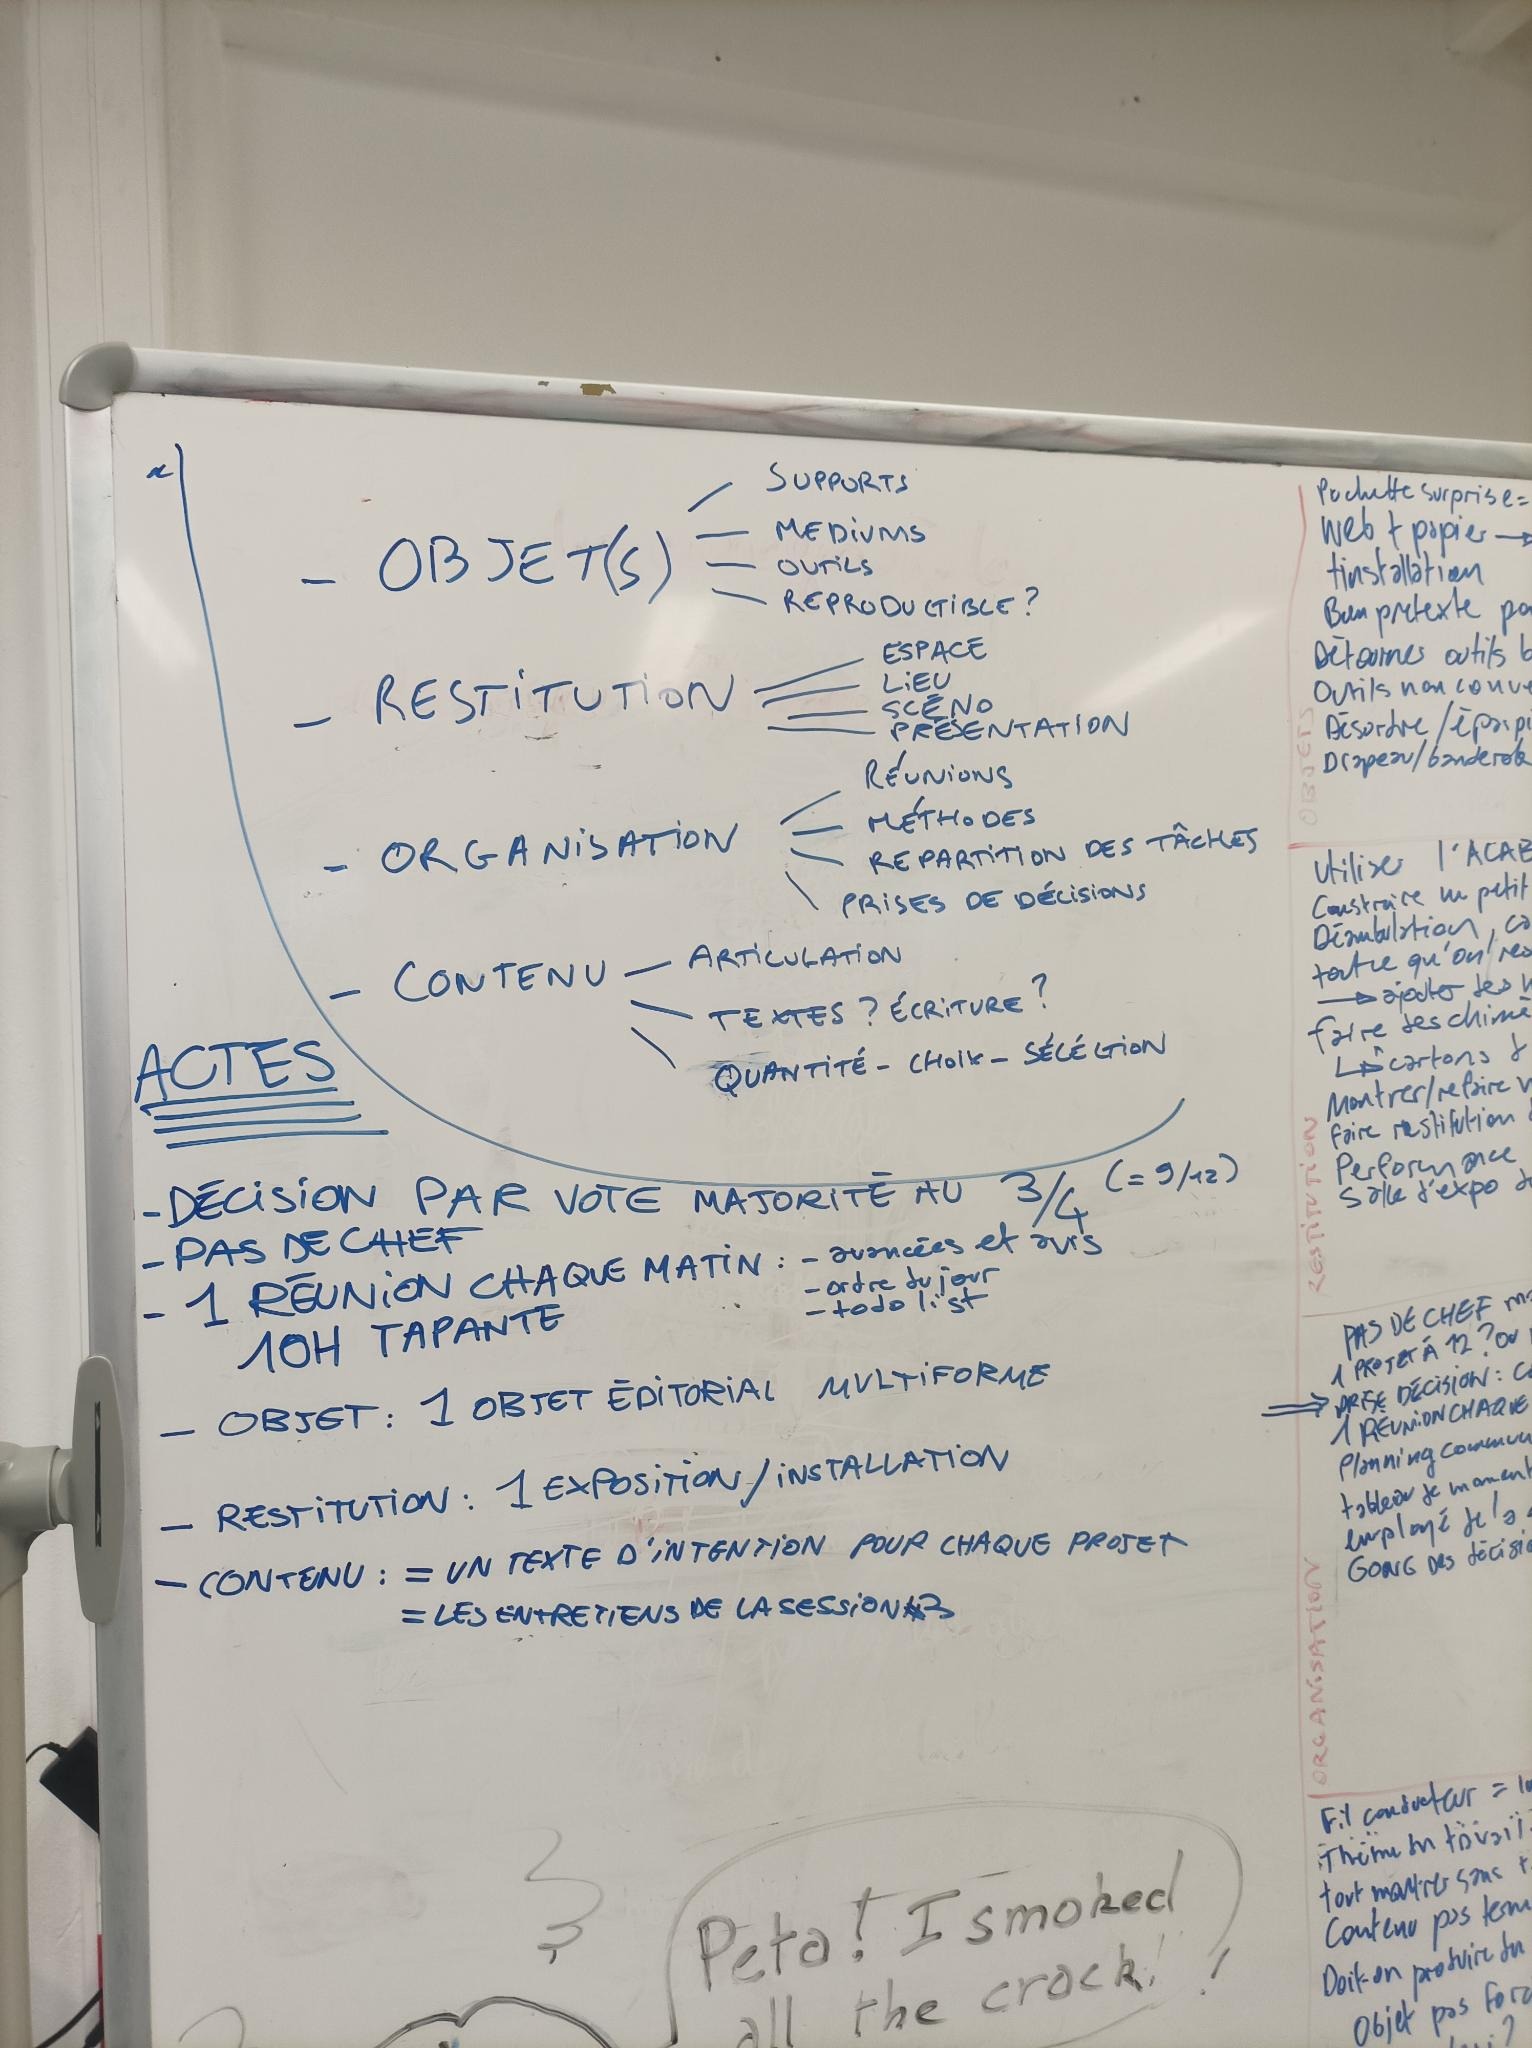 - OBJET(S)
SUPPORTS
MEDIUMS
OUTILS
REPRODUCTIBLE?
- RESTITUTION
ESPACE
LIEU
SCÉNO
PRÉSENTATION
- ORGANISATION
RÉUNIONS
MÉTHODES
REPARTITION DES TÂCHES
PRISES DE DÉCISIONS
- CONTENU
ARTICULATION
TEXTES? ÉCRITURE?
QUANTITÉ - CHOIX - SÉLÉCTION
ACTES
- DÉCISION PAR VOTE MAJORITÉ AU 3/4 (= 9/12)
- PAS DE CHEF
- 1 RÉUNION CHAQUE MATIN : - avancées et avis
- ordre du jour
- todo list
10H TAPANTE
- OBJET : 1 OBJET ÉDITORIAL MULTIFORME
- RESTITUTION : 1 EXPOSITION/INSTALLATION
- CONTENU : = UN TEXTE D'INTENTION POUR CHAQUE PROJET
= LES ENTRETIENS DE LA SESSION #3
Peta! I smoked
all the crack!!
OBJETS
Pochette surprise =
Web + papier →
+installation
Bon pretexte
Détourner outils
Outils non
Désordre/
Drapeau/
RESTITUTION
Utiliser
Construire un petit
Déambulation,
qu'on
→ ajouter des
faire des
↳ cartons
Montrer/refaire
faire restitution
Performance
Salle d'expo
ORGANISATION
PAS DE CHEF
1 PROJET À 12? ou
⇒ PRISE DÉCISION :
1 RÉUNION CHAQUE
Planning
tableau de
employé de la
GONG DES
Fil conducteur =
Thème du travail
tout montrer sans
Contenu pas
Doit-on produire du
Objet pas